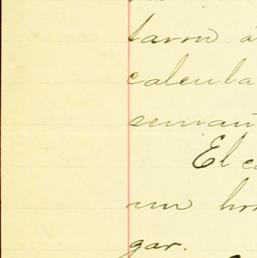 taron á
calcula
seman
El c
un ho
gar.